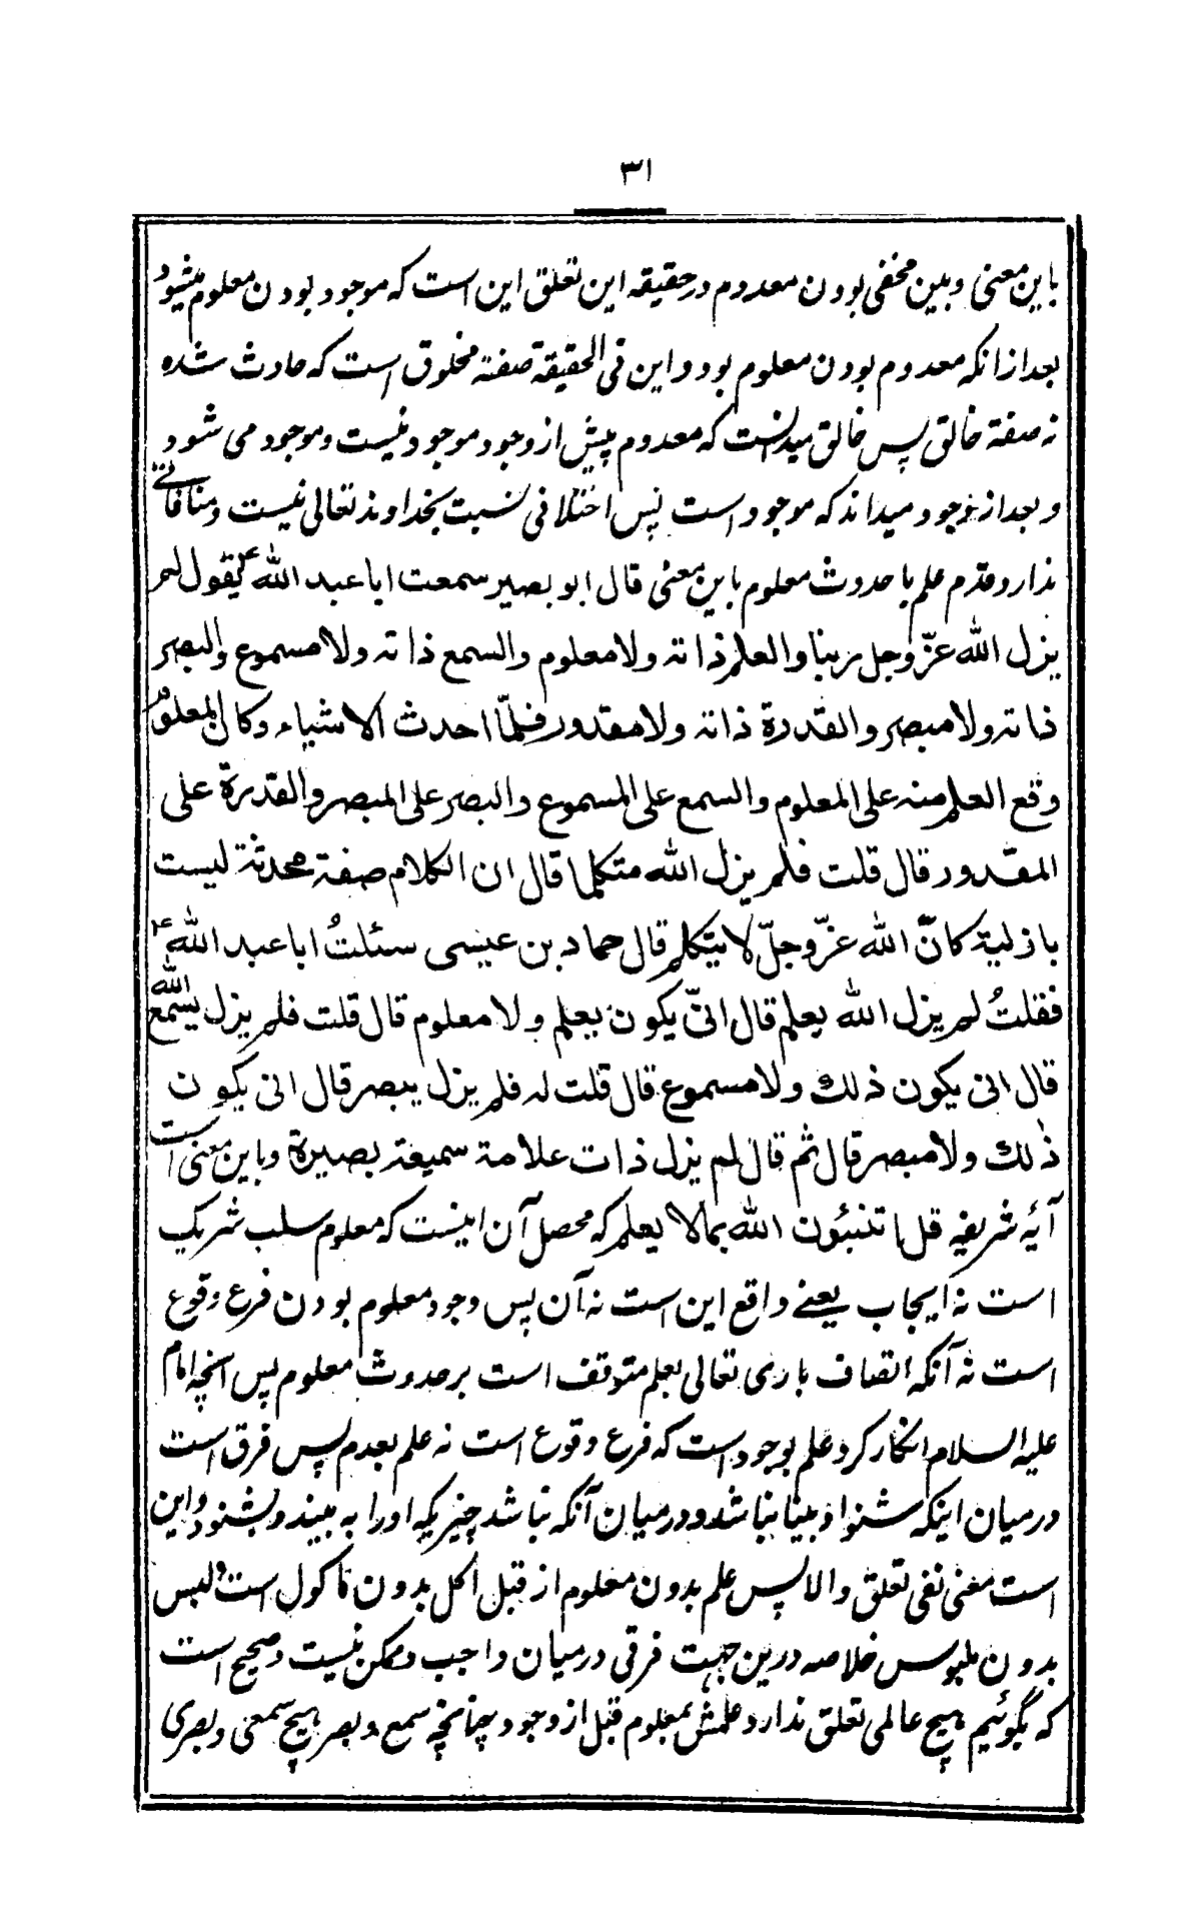 ۳۱
باین معنی و بین مخفی بودن معدوم در حقیقه این تعلق این است که موجود بودن معلوم میشود
بعد از انکه معدوم بودن معلوم بود و این فی الحقیقة صفته مخلوق است که حادث شده
نه صفة خالق پس خالق میدانست که معدوم پیش از وجود موجود نیست و موجود می شود
و بعد از وجود میداند که موجود است پس اختلافی نسبت بخداوند تعالی نیست و منافاتی
ندارد قدم علم با حدوث معلوم باین معنی قال ابو بصیر سمعت ابا عبد الله ع یقول لم
یزل الله عزّ وجل ربنا والعلم ذاته ولا معلوم والسمع ذاته ولا مسموع والبصر
ذاته ولا مبصر والقدرة ذاته ولا مقدور فلمّا احدث الاشیاء وکان المعلوم
وقع العلم منه علی المعلوم والسمع علی المسموع والبصر علی المبصر والقدرة علی
المقدور قال قلت فلم یزل الله متکلما قال ان الکلام صفة محدثة لیست
بازلیة کانّ الله عزّ وجلّ لا یتکلم قال حماد بن عیسی سئلتُ ابا عبد الله ع
فقلتُ لم یزل الله یعلم قال انیّ یکون یعلم ولا معلوم قال قلت فلم یزل الله یسمع
قال انی یکون ذلك ولا مسموع قال قلت له فلم یزل یبصر قال انی یکون
ذلك ولا مبصر قال ثم قال لم یزل ذات علامة سمیعة بصیرة و باین معنی است
آیٔه شریفه قل اتنبئون الله بما لا یعلم که محصل آن اینست که معلوم سلب شریک
است نه ایجاب یعنے واقع این است نه آن پس وجود معلوم بودن فرع وقوع
است نه آنکه اتصاف باری تعالی بعلم متوقف است بر حدوث معلوم پس آنچه امام
علیه السلام انکار کرد علم بوجود است که فرع وقوع است نه علم بعدم پس فرق است
درمیان اینکه شنوا و بینا نباشد و درمیان آنکه نباشد چیزیکه او را به بیند و بشنود و این
است معنی نفی تعلق والا پس علم بدون معلوم از قبل اکل بدون ماکول است و لبس
بدون ملبوس خلاصه درین جهت فرقی درمیان واجب و ممکن نیست و صحیح است
که بگوئیم هیچ عالمی تعلق ندارد علمش بمعلوم قبل از وجود چنانچه سمع و بصر هیچ سمعی و بصری